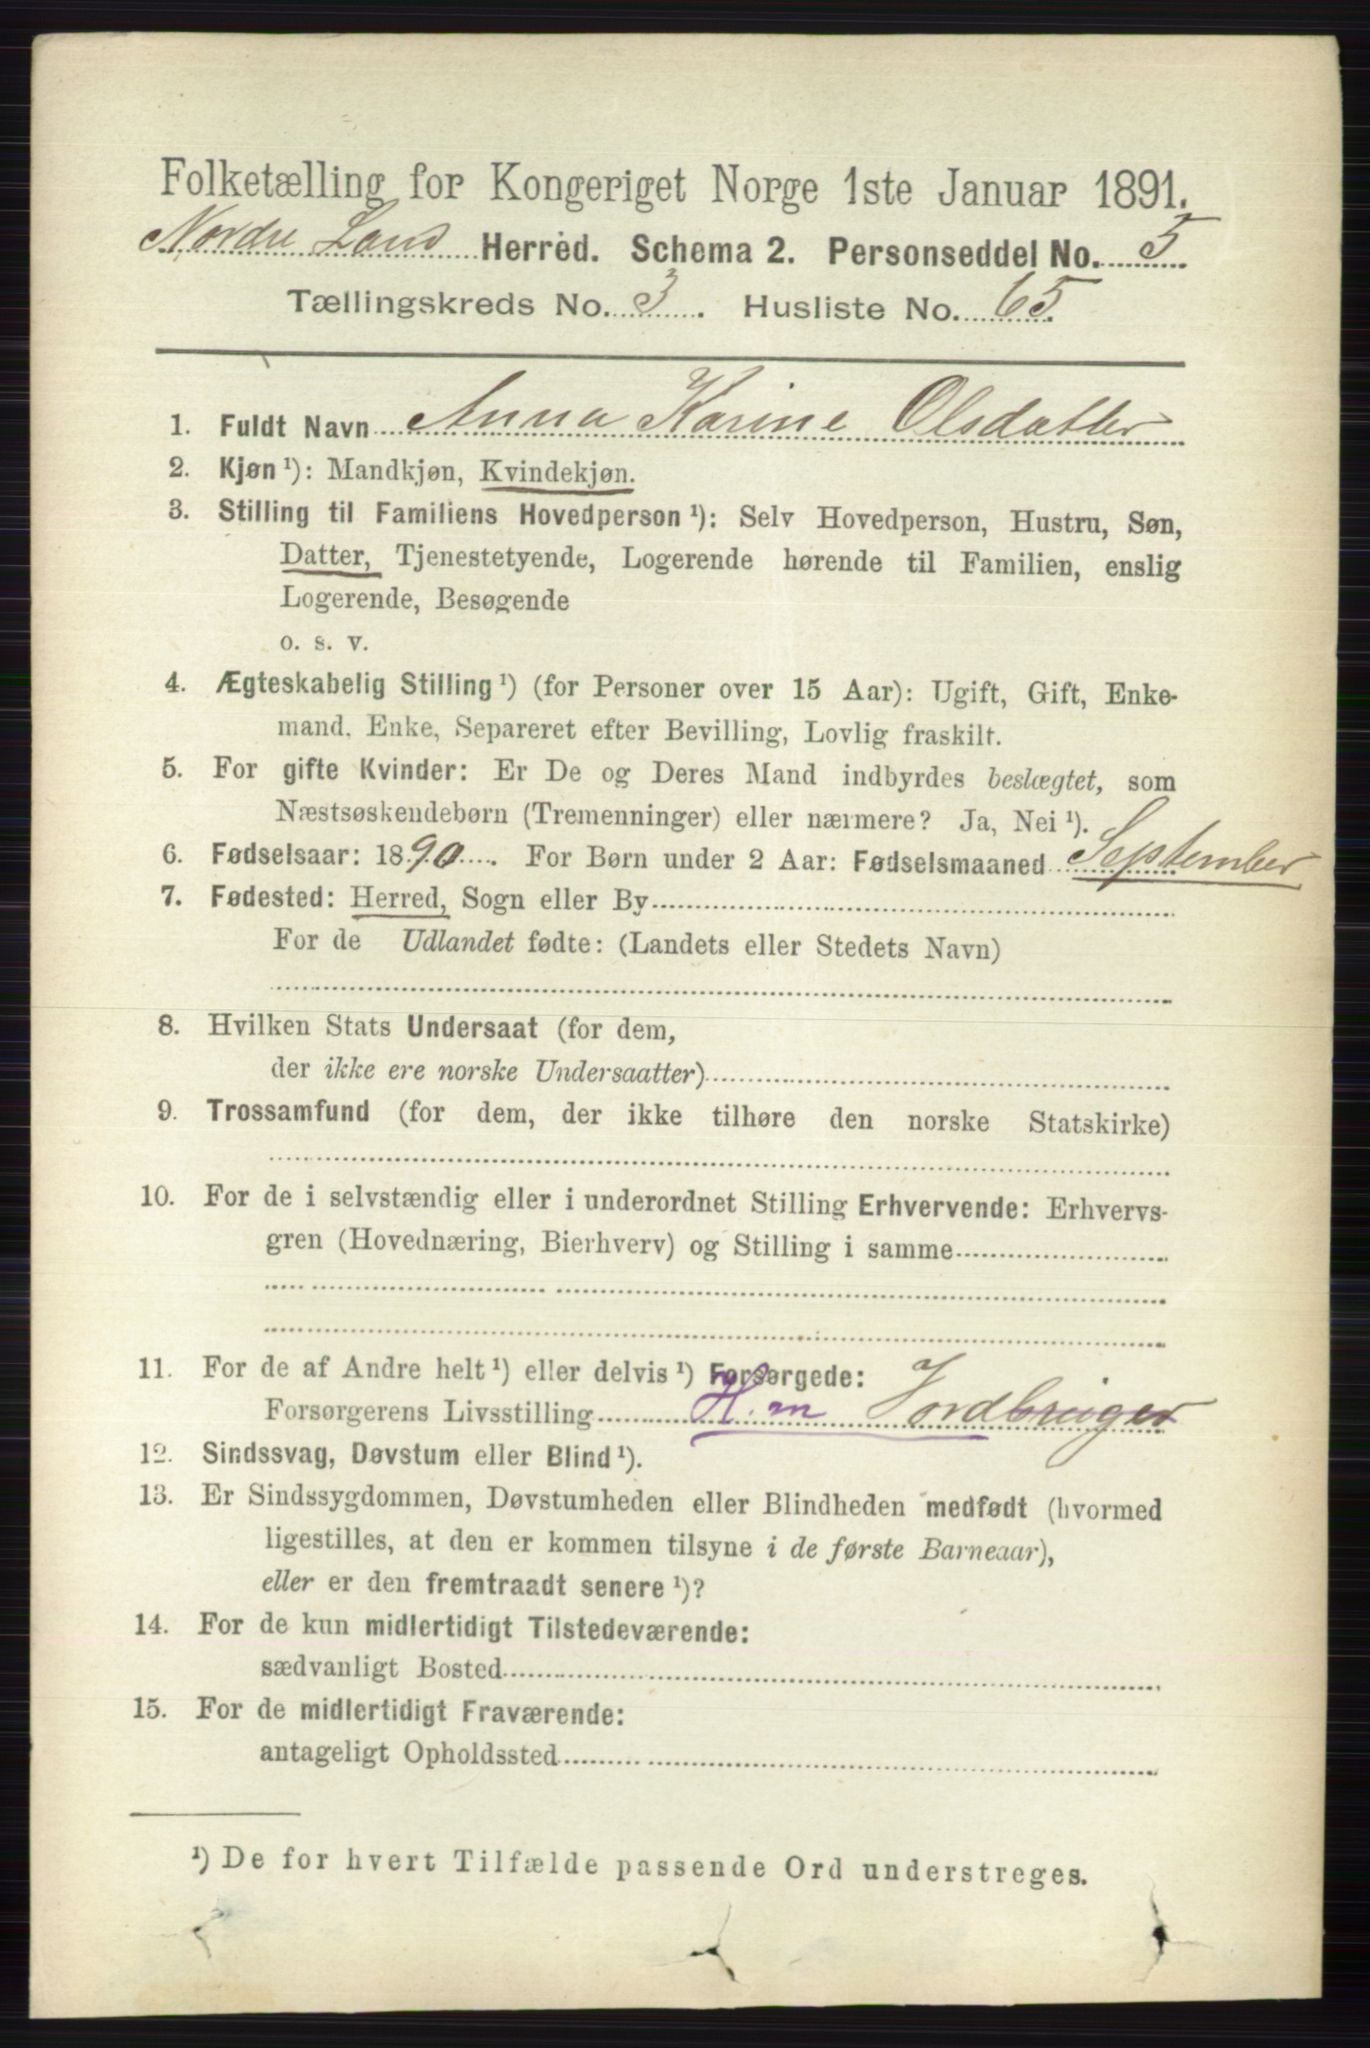 Folketælling for Kongeriget Norge 1ste Januar 1891.
Nordre Land Herred. Schema 2. Personseddel No. 5
Tællingskreds No. 3. Husliste No. 65.
1. Fuldt Navn Anna Karine Olsdatter
2. Kjøn ¹): Mandkjøn, Kvindekjøn.
3. Stilling til Familiens Hovedperson ¹): Selv Hovedperson, Hustru, Søn,
Datter, Tjenestetyende, Logerende hørende til Familien, enslig
Logerende, Besøgende
o. s. v.
4. Ægteskabelig Stilling ¹) (for Personer over 15 Aar): Ugift, Gift, Enke-
mand, Enke, Separeret efter Bevilling, Lovlig fraskilt.
5. For gifte Kvinder: Er De og Deres Mand indbyrdes beslægtet, som
Næstsøskendebørn (Tremenninger) eller nærmere? Ja, Nei ¹).
6. Fødselsaar: 1890. For Børn under 2 Aar: Fødselsmaaned September
7. Fødested: Herred, Sogn eller By
For de Udlandet fødte: (Landets eller Stedets Navn)
8. Hvilken Stats Undersaat (for dem,
der ikke ere norske Undersaatter)
9. Trossamfund (for dem, der ikke tilhøre den norske Statskirke)
10. For de i selvstændig eller i underordnet Stilling Erhvervende: Erhvervs-
gren (Hovednæring, Bierhverv) og Stilling i samme
11. For de af Andre helt ¹) eller delvis ¹) Forsørgede:
Forsørgerens Livsstilling H. m Jordbruger
12. Sindssvag, Døvstum eller Blind ¹).
13. Er Sindssygdommen, Døvstumheden eller Blindheden medfødt (hvormed
ligestilles, at den er kommen tilsyne i de første Barneaar),
eller er den fremtraadt senere ¹)?
14. For de kun midlertidigt Tilstedeværende:
sædvanligt Bosted
15. For de midlertidigt Fraværende:
antageligt Opholdssted
¹) De for hvert Tilfælde passende Ord understreges.